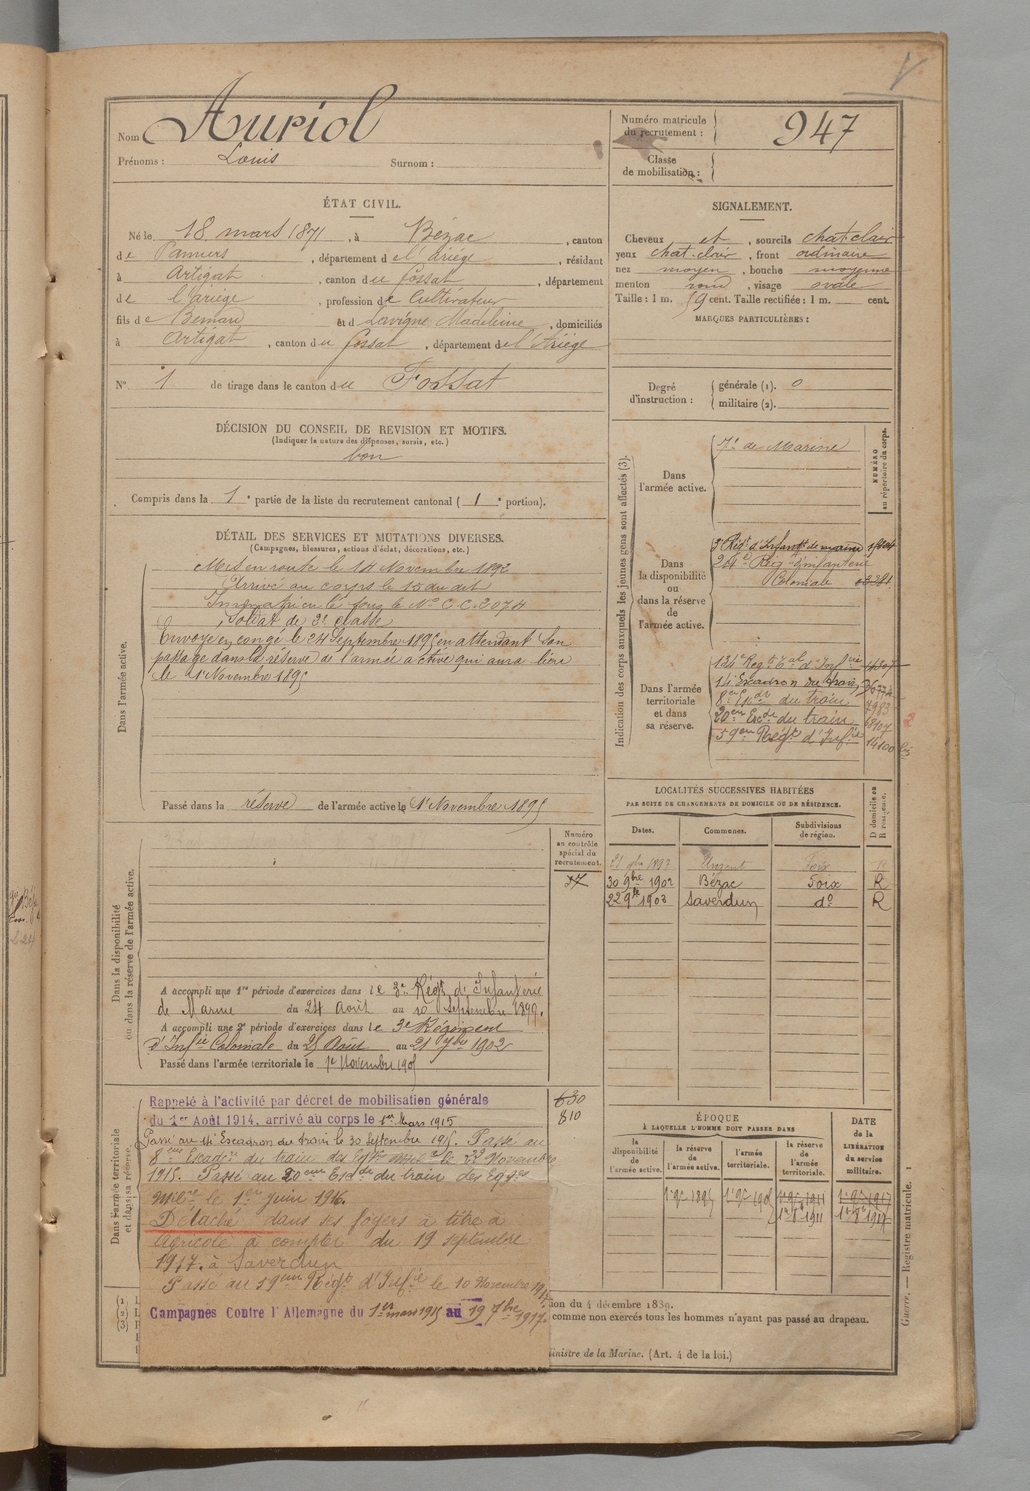 V
Nom Auriol
Prénoms : Louis Surnom :
Numéro matricule du recrutement : 947
Classe de mobilisation :
ÉTAT CIVIL.
Né le 18 mars 1871, à Bézac, canton
de Pamiers, département de l'ariége, résidant
à Artigat, canton du fossat, département
de l'ariége, profession de Cultivateur
fils de Bernard et d Lavigne Madeleine, domiciliés
à Artigat, canton du fossat, département de l'Ariége
N° 1 de tirage dans le canton du Fossat
SIGNALEMENT.
Cheveux et, sourcils chat clair
yeux chat. clair, front ordinaire
nez moyen, bouche moyenne
menton rond, visage ovale
Taille : 1 m. 59 cent. Taille rectifiée : 1 m. cent.
MARQUES PARTICULIÈRES :
Degré d'instruction : générale (1). 0
militaire (2).
DÉCISION DU CONSEIL DE REVISION ET MOTIFS.
(Indiquer la nature des dispenses, sursis, etc.)
bon
Compris dans la 1e partie de la liste du recrutement cantonal ( 1e portion).
DÉTAIL DES SERVICES ET MUTATIONS DIVERSES.
(Campagnes, blessures, actions d'éclat, décorations, etc.)
Dans l'armée active.
Mis en route le 14 Novembre 1892
Arrivé au corps le 15 du dit
Immatriculé sous le N° C.C. 2074
Soldat de 2e classe
Envoyé en congé le 24 Septembre 1895 en attendant son
passage dans la réserve de l'armée active qui aura lieu
le 1 Novembre 1895
Passé dans la réserve de l'armée active le 1r Novembre 1895
Indication des corps auxquels les jeunes gens sont affectés (3).
NUMÉRO au répertoire du corps.
Dans l'armée active.
7e de Marine
Dans la disponibilité ou dans la réserve de l'armée active.
3e Régt d'Infantie de marine
24e Rég. d'Infanterie
Coloniale
Dans l'armée territoriale et dans sa réserve.
124e Regt Tal d'Infrie
14 Escadron du train
8eme Escdr du train 7983
20eme Escdr du train
59eme Régt d'Infie 14100 bis
LOCALITÉS SUCCESSIVES HABITÉES
PAR SUITE DE CHANGEMENTS DE DOMICILE OU DE RÉSIDENCE.
Dates. Communes. Subdivisions de région. D domicile ou R résidence.
30 9bre 1902 Bézac Foix R
22 9bre 1903 Saverdun do R
Dans la disponibilité ou dans la réserve de l'armée active.
Numéro au contrôle spécial du recrutement.
37
A accompli une 1re période d'exercices dans le 3e Régt d'Infanterie
de Marine du 24 Août au 20 Septembre 1899.
A accompli une 2e période d'exercices dans le 3e Régiment
d'Infie Coloniale du 25 Août au 21 7bre 1902
Passé dans l'armée territoriale le 1er Novembre 1905
Dans l'armée territoriale et dans sa réserve.
Rappelé à l'activité par décret de mobilisation générale
du 1er Août 1914, arrivé au corps le 1er Mars 1915
630
810
Passé au 14e Escadron du train le 30 septembre 1915. Passé au
8eme Escadron du train des Eqges milres le 22 Novembre
1915. Passé au 20eme Escdr du train des Eqges
Milres le 1er juin 1916.
Détaché dans ses foyers à titre
agricole à compter du 19 septembre
1917. à Saverdun
Passé au 59eme Régt d'Infie le 10 Novembre 1917.
Campagnes Contre l'Allemagne du 1er mars 1915 au 19 7bre 1917.
ÉPOQUE
À LAQUELLE L'HOMME DOIT PASSER DANS
la disponibilité de l'armée active. la réserve de l'armée active. l'armée territoriale. la réserve de l'armée territoriale.
DATE de la LIBÉRATION du service militaire.
1r 9bre 1895 1r 9bre 1905 1r 9bre 1911 1r 9bre 1917
1r 8bre 1911 1r 8bre 1917
ion du 4 décembre 1889.
comme non exercés tous les hommes n'ayant pas passé au drapeau.
inistre de la Marine. (Art. 4 de la loi.)
Guerre. — Registre matricule. 1